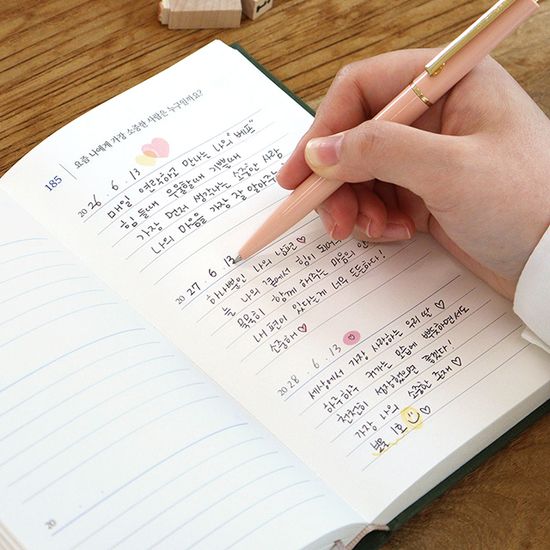 185
요즘 나에게 가장 소중한 사람은 누구일까요?
20 26 . 6 . 13
매일 연락하고 만나는 나의 "베프"
힘들때 우울할때 기쁠때
가장 먼저 생각나는 소중한 사람
나의 마음을 가장 잘 알아주는
20 27 . 6 . 13
하나뿐인 나의 남편 ♡
늘 나의 곁에서 힘이 되어
묵묵히 함께 해주는 마음의 안
내 편이 있다는게 너무 든든하다!
소중해 ♡
20 28 . 6 . 13
세상에서 가장 사랑하는 우리 딸 ♡
하루하루 커가는 모습에 뿌듯하면서도
천천히 성장했으면 좋겠다!
가장 나의 소중한 존재 ♡
보물 1호 ♡
20